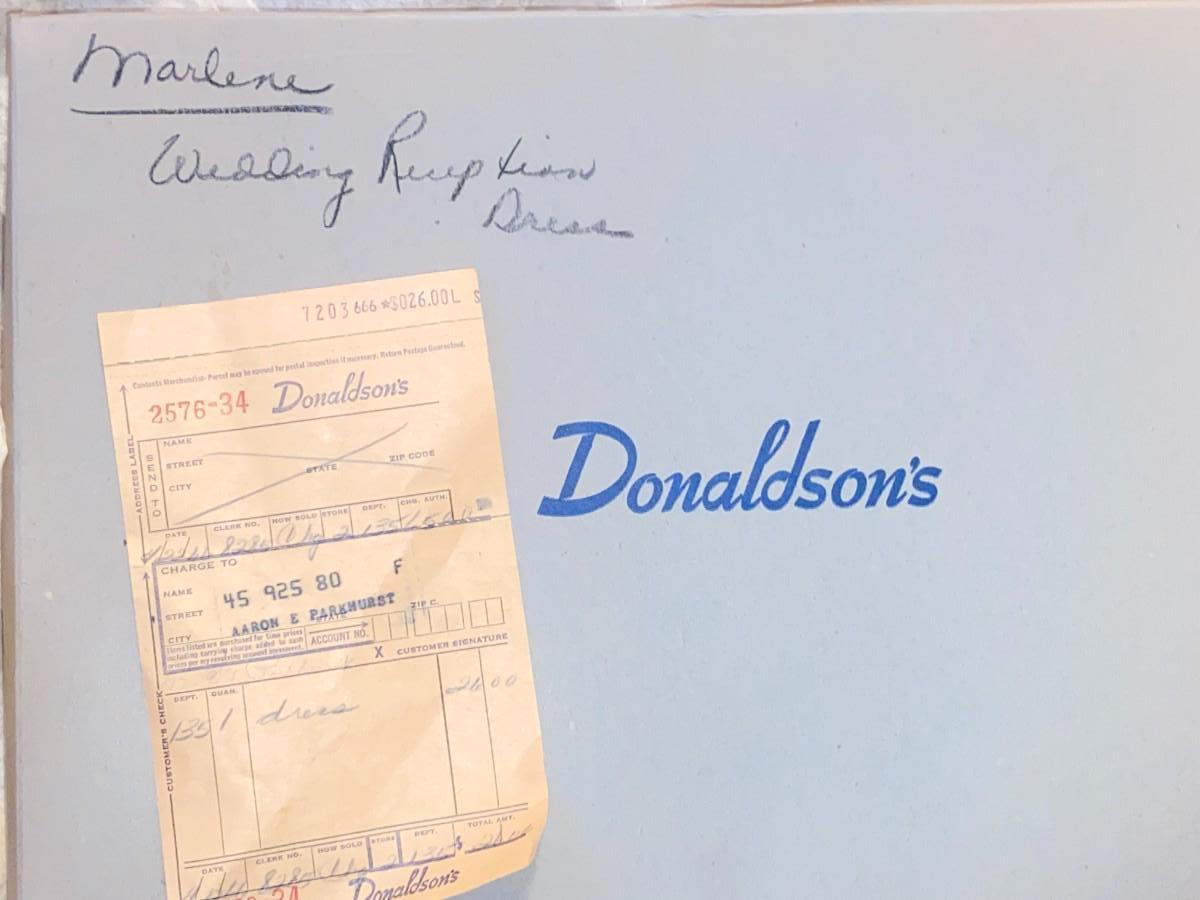 Marlene
Wedding Reception
Dress
7203 666 *$026.00L S
Contents Merchandise- Parcel may be opened for postal inspection if necessary. Return Postage Guaranteed.
2576-34 Donaldson's
ADDRESS LABEL
SEND TO
NAME
STREET STATE ZIP CODE
CITY
DATE CLERK NO. HOW SOLD STORE DEPT. CHG. AUTH.
8280 2 135
CHARGE TO
NAME 45 925 80 F
STREET AARON E PARKHURST
CITY STATE ZIP C.
Items listed are purchased for time prices
including carrying charge added to cash
prices per my revolving account agreement.
ACCOUNT NO.
X CUSTOMER SIGNATURE
CUSTOMER'S CHECK
DEPT. QUAN.
135 1 dress 26 00
DATE CLERK NO. HOW SOLD STORE DEPT. TOTAL AMT.
8280 2 135 $ 26.00
34 Donaldson's
Donaldson's